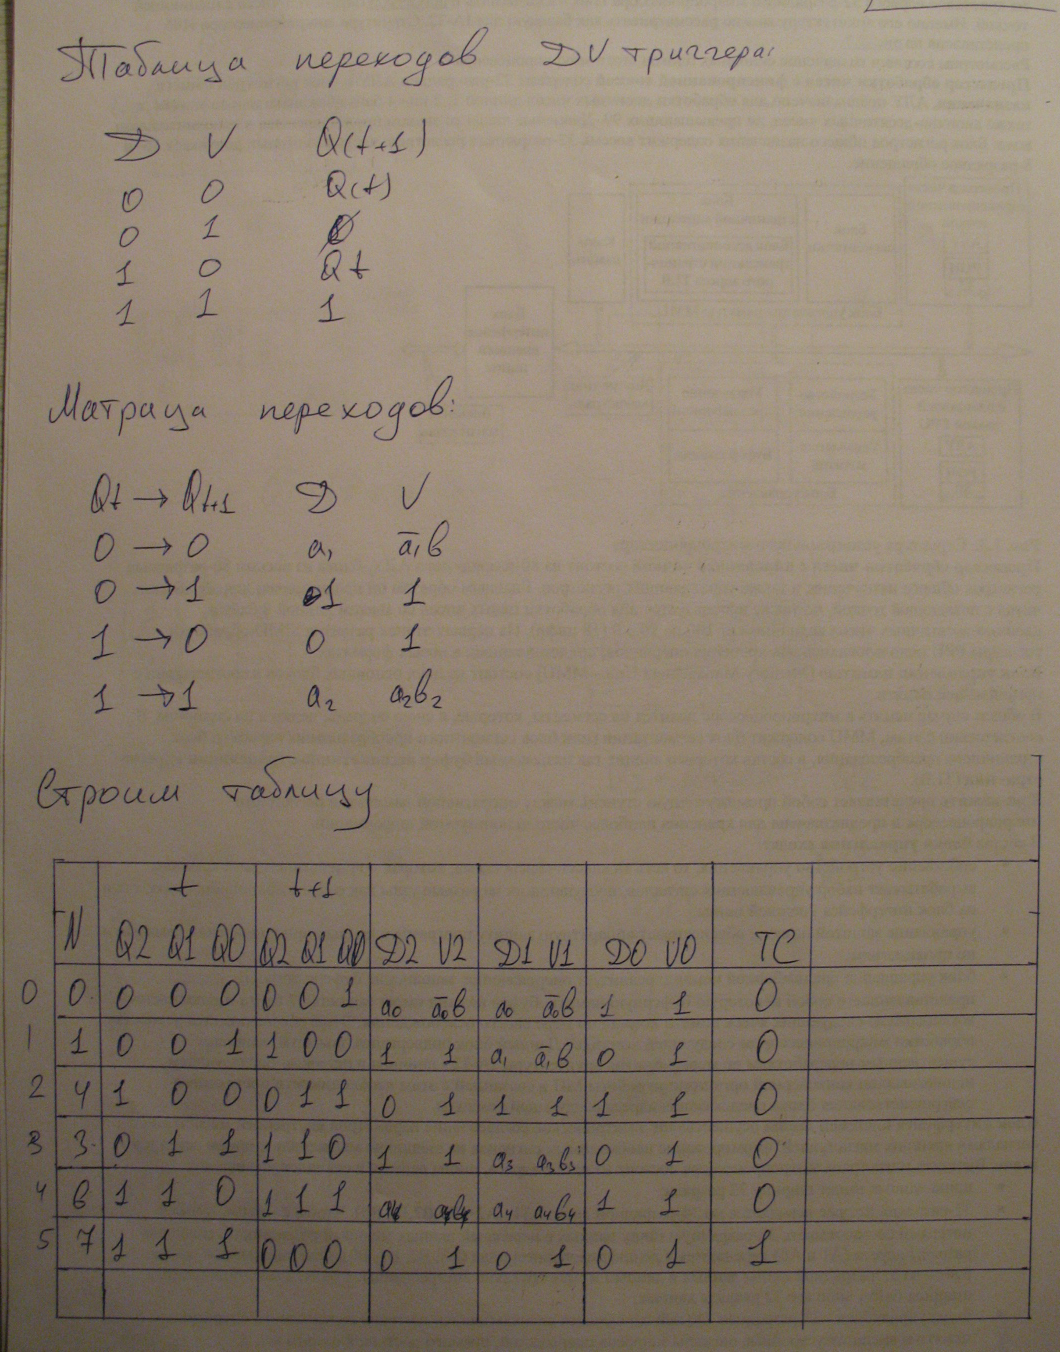 Таблица переходов DV триггера:
D V Q(t+1)
0 0 Q(t)
0 1 0
1 0 Qt
1 1 1
Матраца переходов:
Qt → Qt+1 D V
0 → 0 a₁ a̅₁b
0 → 1 1 1
1 → 0 0 1
1 → 1 a₂ a₂b₂
Строим таблицу
t t+1
N Q2 Q1 Q0 Q2 Q1 Q0 D2 V2 D1 V1 D0 V0 TC
0 0 0 0 0 0 0 1 a₀ a̅₀b a₀ a̅₀b 1 1 0
1 1 0 0 1 1 0 0 1 1 a₁ a̅₁b 0 1 0
2 4 1 0 0 0 1 1 0 1 1 1 1 1 0
3 3 0 1 1 1 1 0 1 1 a₃ a₃b₃ 0 1 0
4 6 1 1 0 1 1 1 a₄ a₄b₄ a₄ a₄b₄ 1 1 0
5 7 1 1 1 0 0 0 0 1 0 1 0 1 1